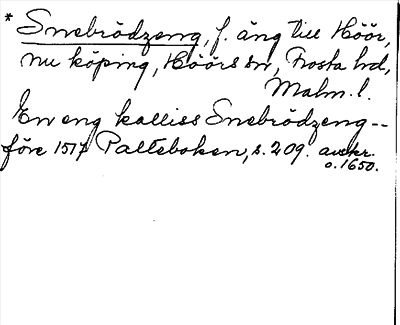 * Snebrödzeng, f. äng till Höör,
nu köping, Höörs sn, Frosta hd,
Malm. l.
En eng kalliss Snebrödzeng --
före 1517 Palteboken, s. 209. avskr.
o. 1650.